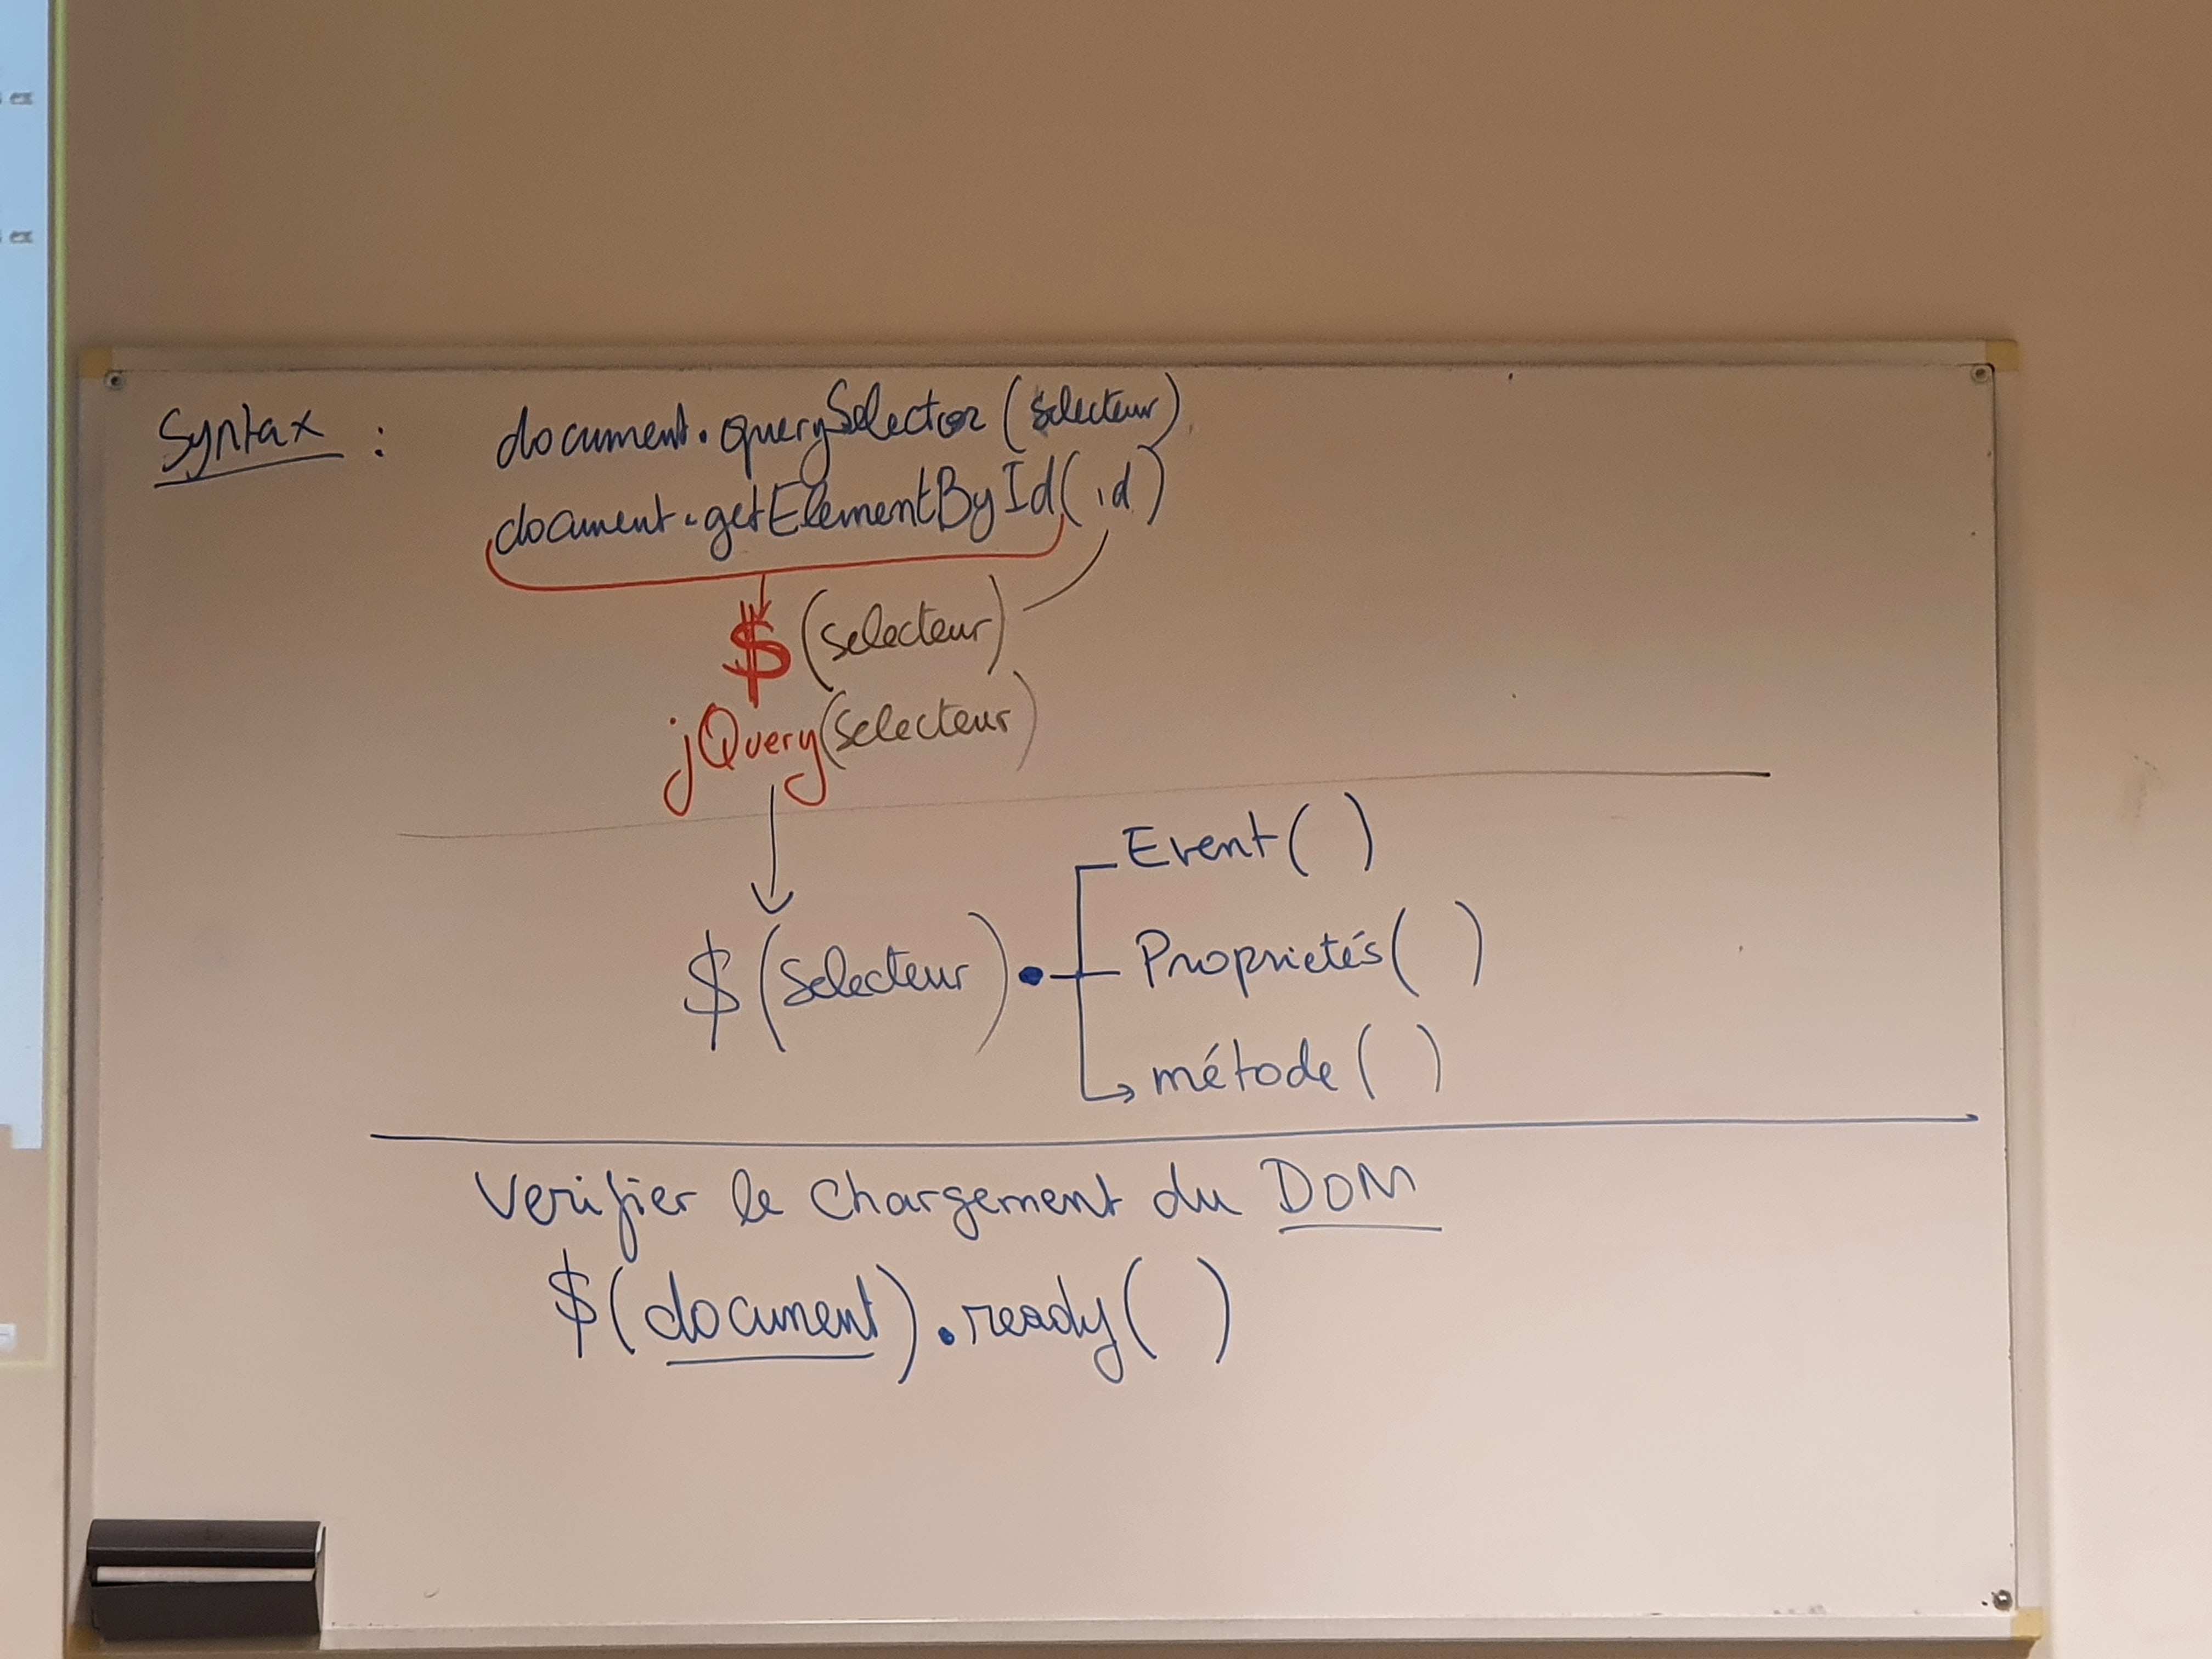 ex
ex
Syntax : document.querySelector(selecteur)
document.getElementById(id)
$(selecteur)
jQuery(selecteur)
Event( )
$(selecteur). Proprietés( )
métode( )
Verifier le chargement du DOM
$(document).ready( )